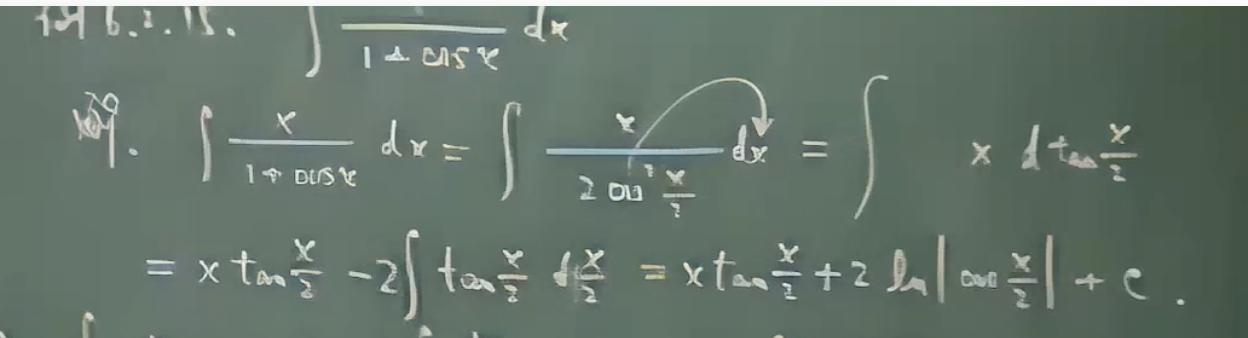 例6.2.15. ∫ x/(1+cos x) dx
解. ∫ x/(1+cos x) dx = ∫ x/(2cos² x/2) dx = ∫ x d tan x/2
= x tan x/2 - 2∫ tan x/2 d x/2 = x tan x/2 + 2 ln|cos x/2| + c.